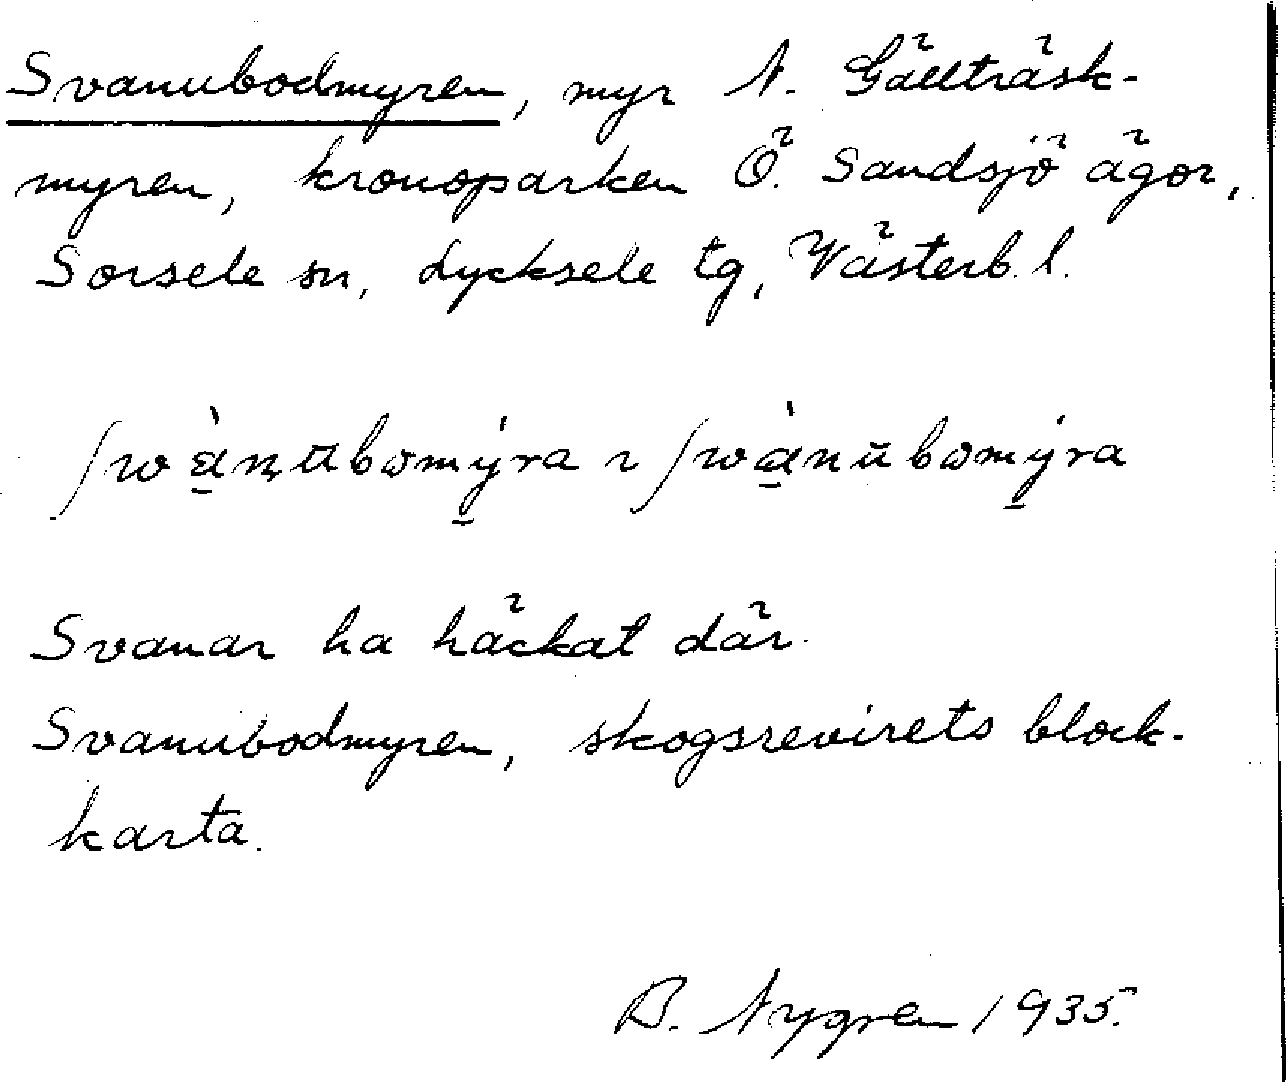 Svanubodmyren, myr N. Gällträsk-
myren, kronoparken Ö. Sandsjö ägor,
Sorsele sn, Lycksele tg, Västerb. l.
ʃwàṇūbomýra ~ ʃwànūbomýra
Svanar ha häckat där.
Svanubodmyren, skogsrevirets block-
karta.
B. Nygren 1935.